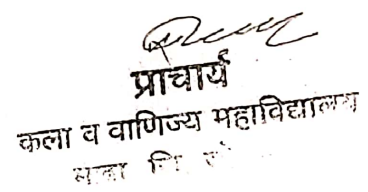 प्राचार्य
कला व वाणिज्य महाविद्यालय
जि